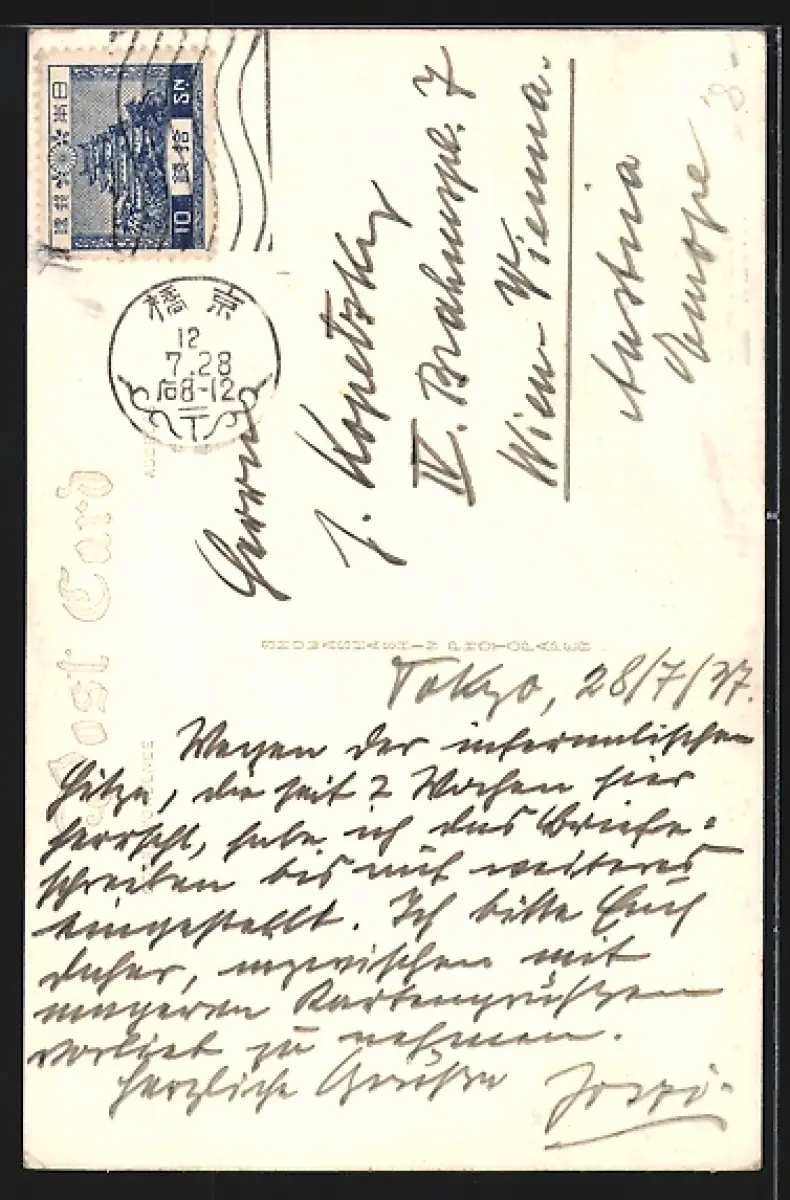 日本郵便
拾銭
10 Sn
京橋
12
7.28
后8-12
〒
Post Card
SHOWASHASHIN PHOTOPAPER
Herrn
J. Kopetzky
IV. Brahmspl. 7
Wien-Vienna.
Austria
Europe
Tokyo, 28/7/37.
Wegen der infernalischen
Hitze, die seit 2 Wochen hier
herrscht, habe ich das Briefe-
schreiben bis auf weiteres
eingestellt. Ich bitte Euch
daher, inzwischen mit
mageren Kartengrüßen
vorlieb zu nehmen.
Herzliche Grüße